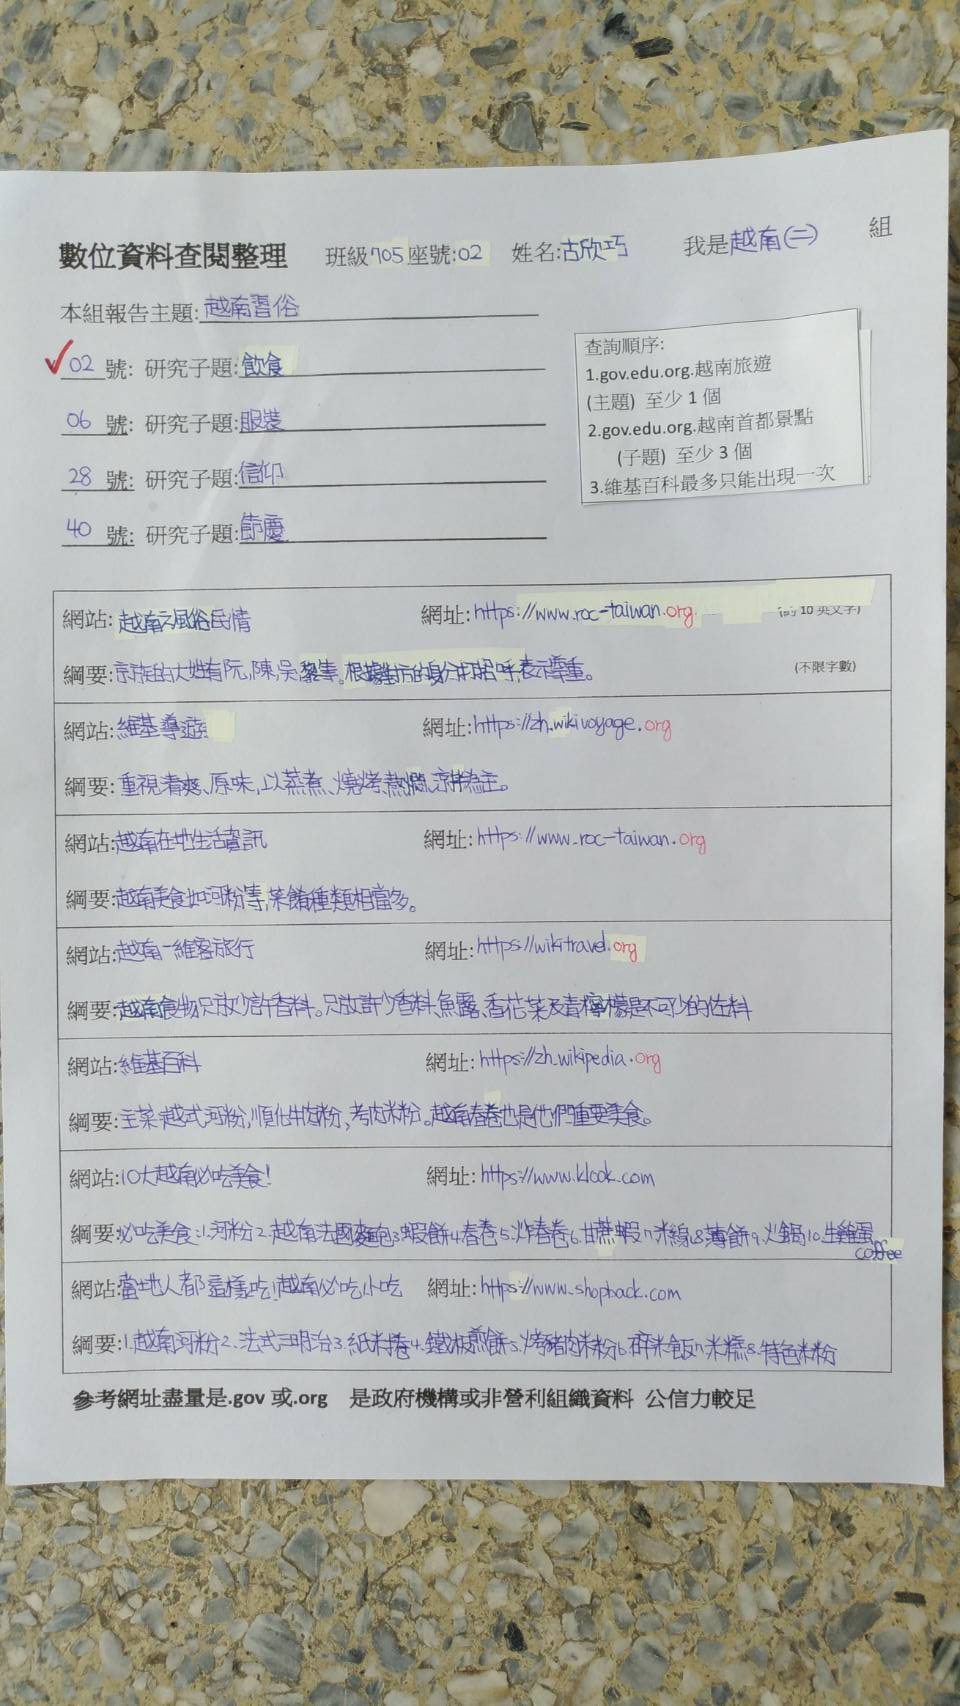 數位資料查閱整理 班級705座號:02 姓名:古欣巧 我是越南(二) 組
本組報告主題:越南習俗
✓02 號: 研究子題:飲食
06 號: 研究子題:服裝
28 號: 研究子題:信仰
40 號: 研究子題:節慶
查詢順序:
1.gov.edu.org.越南旅遊
(主題) 至少 1 個
2.gov.edu.org.越南首都景點
(子題) 至少 3 個
3.維基百科最多只能出現一次
網站:越南之風俗民情 網址:https://www.roc-taiwan.org 10 英文字)
綱要:京族的大姓有阮,陳,吳,黎等。根據對方的身分打招呼,表示尊重。 (不限字數)
網站:維基導遊 網址:https://zh.wikivoyage.org
綱要:重視清爽、原味,以蒸煮、燒烤、熬燜、涼拌為主。
網站:越南在地生活資訊 網址:https://www.roc-taiwan.org
綱要:越南美食如河粉等,菜餚種類相當多。
網站:越南-維客旅行 網址:https://wikitravel.org
綱要:越南食物只放少許香料。只放許少香料、魚露、香花菜及青檸檬是不可少的佐料
網站:維基百科 網址:https://zh.wikipedia.org
綱要:主菜:越式河粉,順化牛肉粉,考肉米粉。越南春卷也是他們重要美食。
網站:10大越南必吃美食! 網址:https://www.klook.com
綱要:必吃美食:1.河粉2.越南法國麵包3.蝦餅4.春卷5.炸春卷6.甘蔗蝦7.米線8.薄餅9.火鍋10.生雞蛋
coffee
網站:當地人都這樣吃!越南必吃小吃 網址:https://www.shopback.com
綱要:1.越南河粉2.法式三明治3.紙米捲4.鐵板煎餅5.烤豬肉米粉6.碎米飯7.米糕8.特色米粉
參考網址盡量是.gov 或.org 是政府機構或非營利組織資料 公信力較足